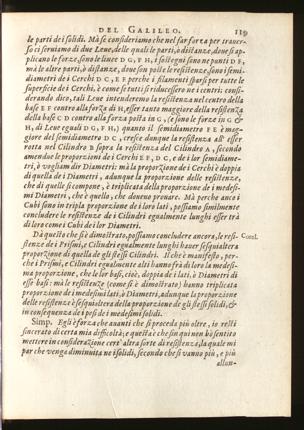 DEL GALILEO. 119
le parti de i solidi. Mà se consideriamo che nel far forza per traver-
so ci serviamo di due Leve, delle quali le parti, ò distanze, dove si ap-
plicano le forze, sono le linee DG, FH, i sostegni sono ne punti DF,
mà le altre parti, ò distanze, dove son poste le resistenze, sono i semi-
diametri de i Cerchi DC, EF perche i filamenti sparsi per tutte le
superficie de i Cerchi, è come se tutti si riducessero ne i centri: consi-
derando dico, tali Leve intenderemo la resistenza nel centro della
base EF contro alla forza di H, esser tanto maggiore della resistenza
della base CD contro alla forza posta in G, (e sono le forze in G &
H, di Leve eguali DG, FH,) quanto il semidiametro FE è mag-
giore del semidiametro DC, cresce dunque la resistenza all' esser
rotta nel Cilindro B sopra la resistenza del Cilindro A, secondo
amendue le proporzioni de i Cerchi EF, DC, e de i lor semidiame-
tri, ò vogliam dir Diametri: mà la proporzione de i Cerchi è doppia
di quella de i Diametri, adunque la proporzione delle resistenze,
che di quelle si compone, è triplicata della proporzione de i medesi-
mi Diametri, che è quello, che doveva provare. Mà perche anco i
Cubi sono in tripla proporzione de i loro lati, possiamo similmente
concludere le resistenze de i Cilindri egualmente lunghi esser trà
di loro come i Cubi de i lor Diametri.
Dà questo che si è dimostrato, possiamo concludere ancora, le resi-
Corol.
stenze de i Prismi, e Cilindri egualmente lunghi haver sesquialtera
proporzione di quella de gli stessi Cilindri. Il che è manifesto, per-
che i Prismi, e Cilindri egualmente alti hanno frà di loro la medesi-
ma proporzione, che le lor basi, cioè, doppia de i lati, ò Diametri di
esse basi: mà le resistenze (come si è dimostrato) hanno triplicata
proporzione de i medesimi lati, ò Diametri, adunque la proporzione
delle resistenze è sesquialtera della proporzione de gli stessi solidi, &
in consequenza de i pesi de i medesimi solidi.
Simp. Egli è forza che avanti che si proceda più oltre, io resti
sincerato di certa mia difficoltà; e questa è che sin qui non hò sentito
mettere in considerazione cert' altra sorte di resistenza, la quale mi
par che venga diminuita ne i solidi, secondo che si vanno più, e più
allun-